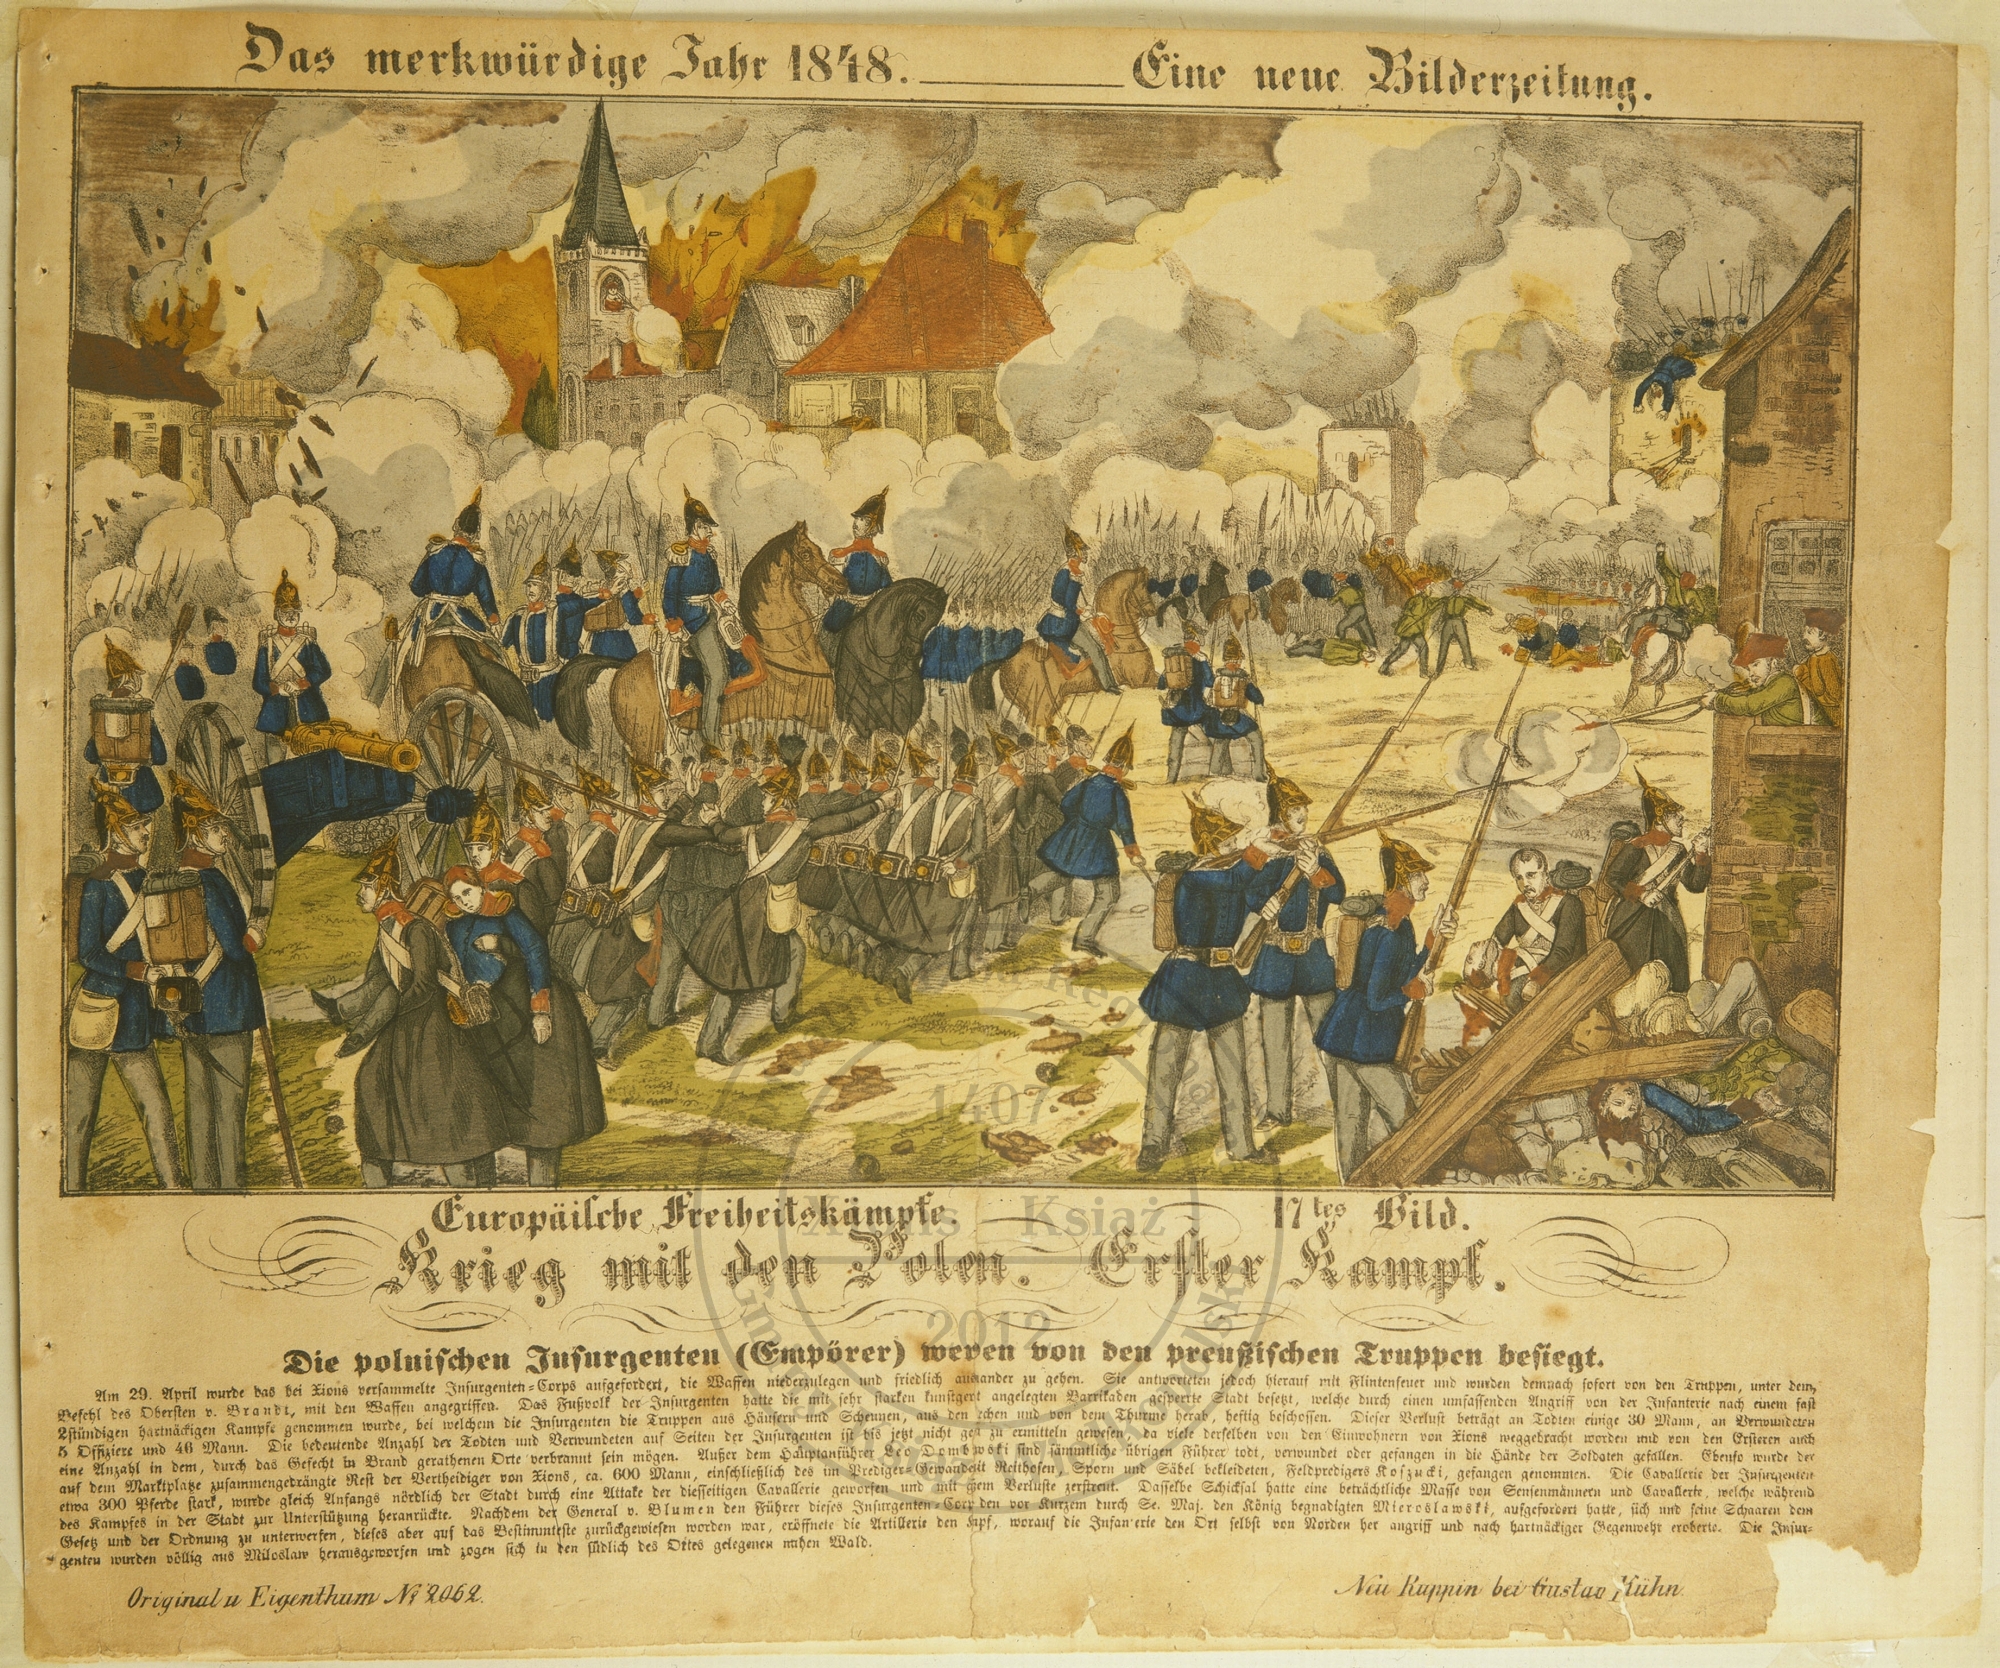 Das merkwürdige Jahr 1848. Eine neue Bilderzeitung.
Europäische Freiheitskämpfe. 17tes Bild.
Krieg mit den Polen. Erster Kampf.
Die polnischen Insurgenten (Empörer) werden von den preußischen Truppen besiegt.
Am 29. April wurde das bei Xions versammelte Insurgenten-Corps aufgefordert, die Waffen niederzulegen und friedlich auseinander zu gehen. Sie antworteten jedoch hierauf mit Flintenfeuer und wurden demnach sofort von den Truppen, unter dem
Befehl des Obersten v. Brandt, mit den Waffen angegriffen. Das Fußvolk der Insurgenten hatte die mit sehr starken kunstgerecht angelegten Barrikaden gesperrte Stadt besetzt, welche durch einen umfassenden Angriff von der Infanterie nach einem fast
2stündigen hartnäckigen Kampfe genommen wurde, bei welchem die Insurgenten die Truppen aus Häusern und Scheunen, aus den und von dem Thurme herab, heftig beschossen. Dieser Verlust beträgt an Todten einige 30 Mann, an Verwundeten
5 Offiziere und 46 Mann. Die bedeutende Anzahl der Todten und Verwundeten auf Seiten der Insurgenten ist bis jetzt nicht zu ermitteln gewesen, da viele derselben von den Einwohnern von Xions weggebracht worden und von den Ersteren auch
eine Anzahl in dem, durch das Gefecht in Brand gerathenen Orte verbrannt sein mögen. Außer dem Hauptanführer Leo Dombowski sind sämmtliche übrigen Führer todt, verwundet oder gefangen in die Hände der Soldaten gefallen. Ebenso wurde der
auf dem Marktplatze zusammengedrängte Rest der Vertheidiger von Xions, ca. 600 Mann, einschließlich des im Prediger-Gewande mit Reithosen, Sporn und Säbel bekleideten, Feldpredigers Koszucki, gefangen genommen. Die Cavallerie der Insurgenten
etwa 300 Pferde stark, wurde gleich Anfangs nördlich der Stadt durch eine Attake der diesseitigen Cavallerie geworfen und mit Verluste zerstreut. Dasselbe Schicksal hatte eine beträchtliche Masse von Sensenmännern und Cavallerie, welche während
des Kampfes in der Stadt zur Unterstützung heranrückte. Nachdem der General v. Blumen den Führer dieses Insurgenten-Corps, den vor Kurzem durch Se. Maj. den König begnadigten Mieroslawski, aufgefordert hatte, sich und seine Schaaren dem
Gesetz und der Ordnung zu unterwerfen, dieses aber auf das Bestimmteste zurückgewiesen worden war, eröffnete die Artillerie den Kampf, worauf die Infanterie den Ort selbst von Norden her angriff und nach hartnäckiger Gegenwehr eroberte. Die Insur-
genten wurden völlig aus Miloslaw herausgeworfen und zogen sich in den südlich des Ortes gelegenen nahen Wald.
Original u Eigenthum No 2062. Neu Ruppin bei Gustav Kühn.
1407
Xions Książ
2012